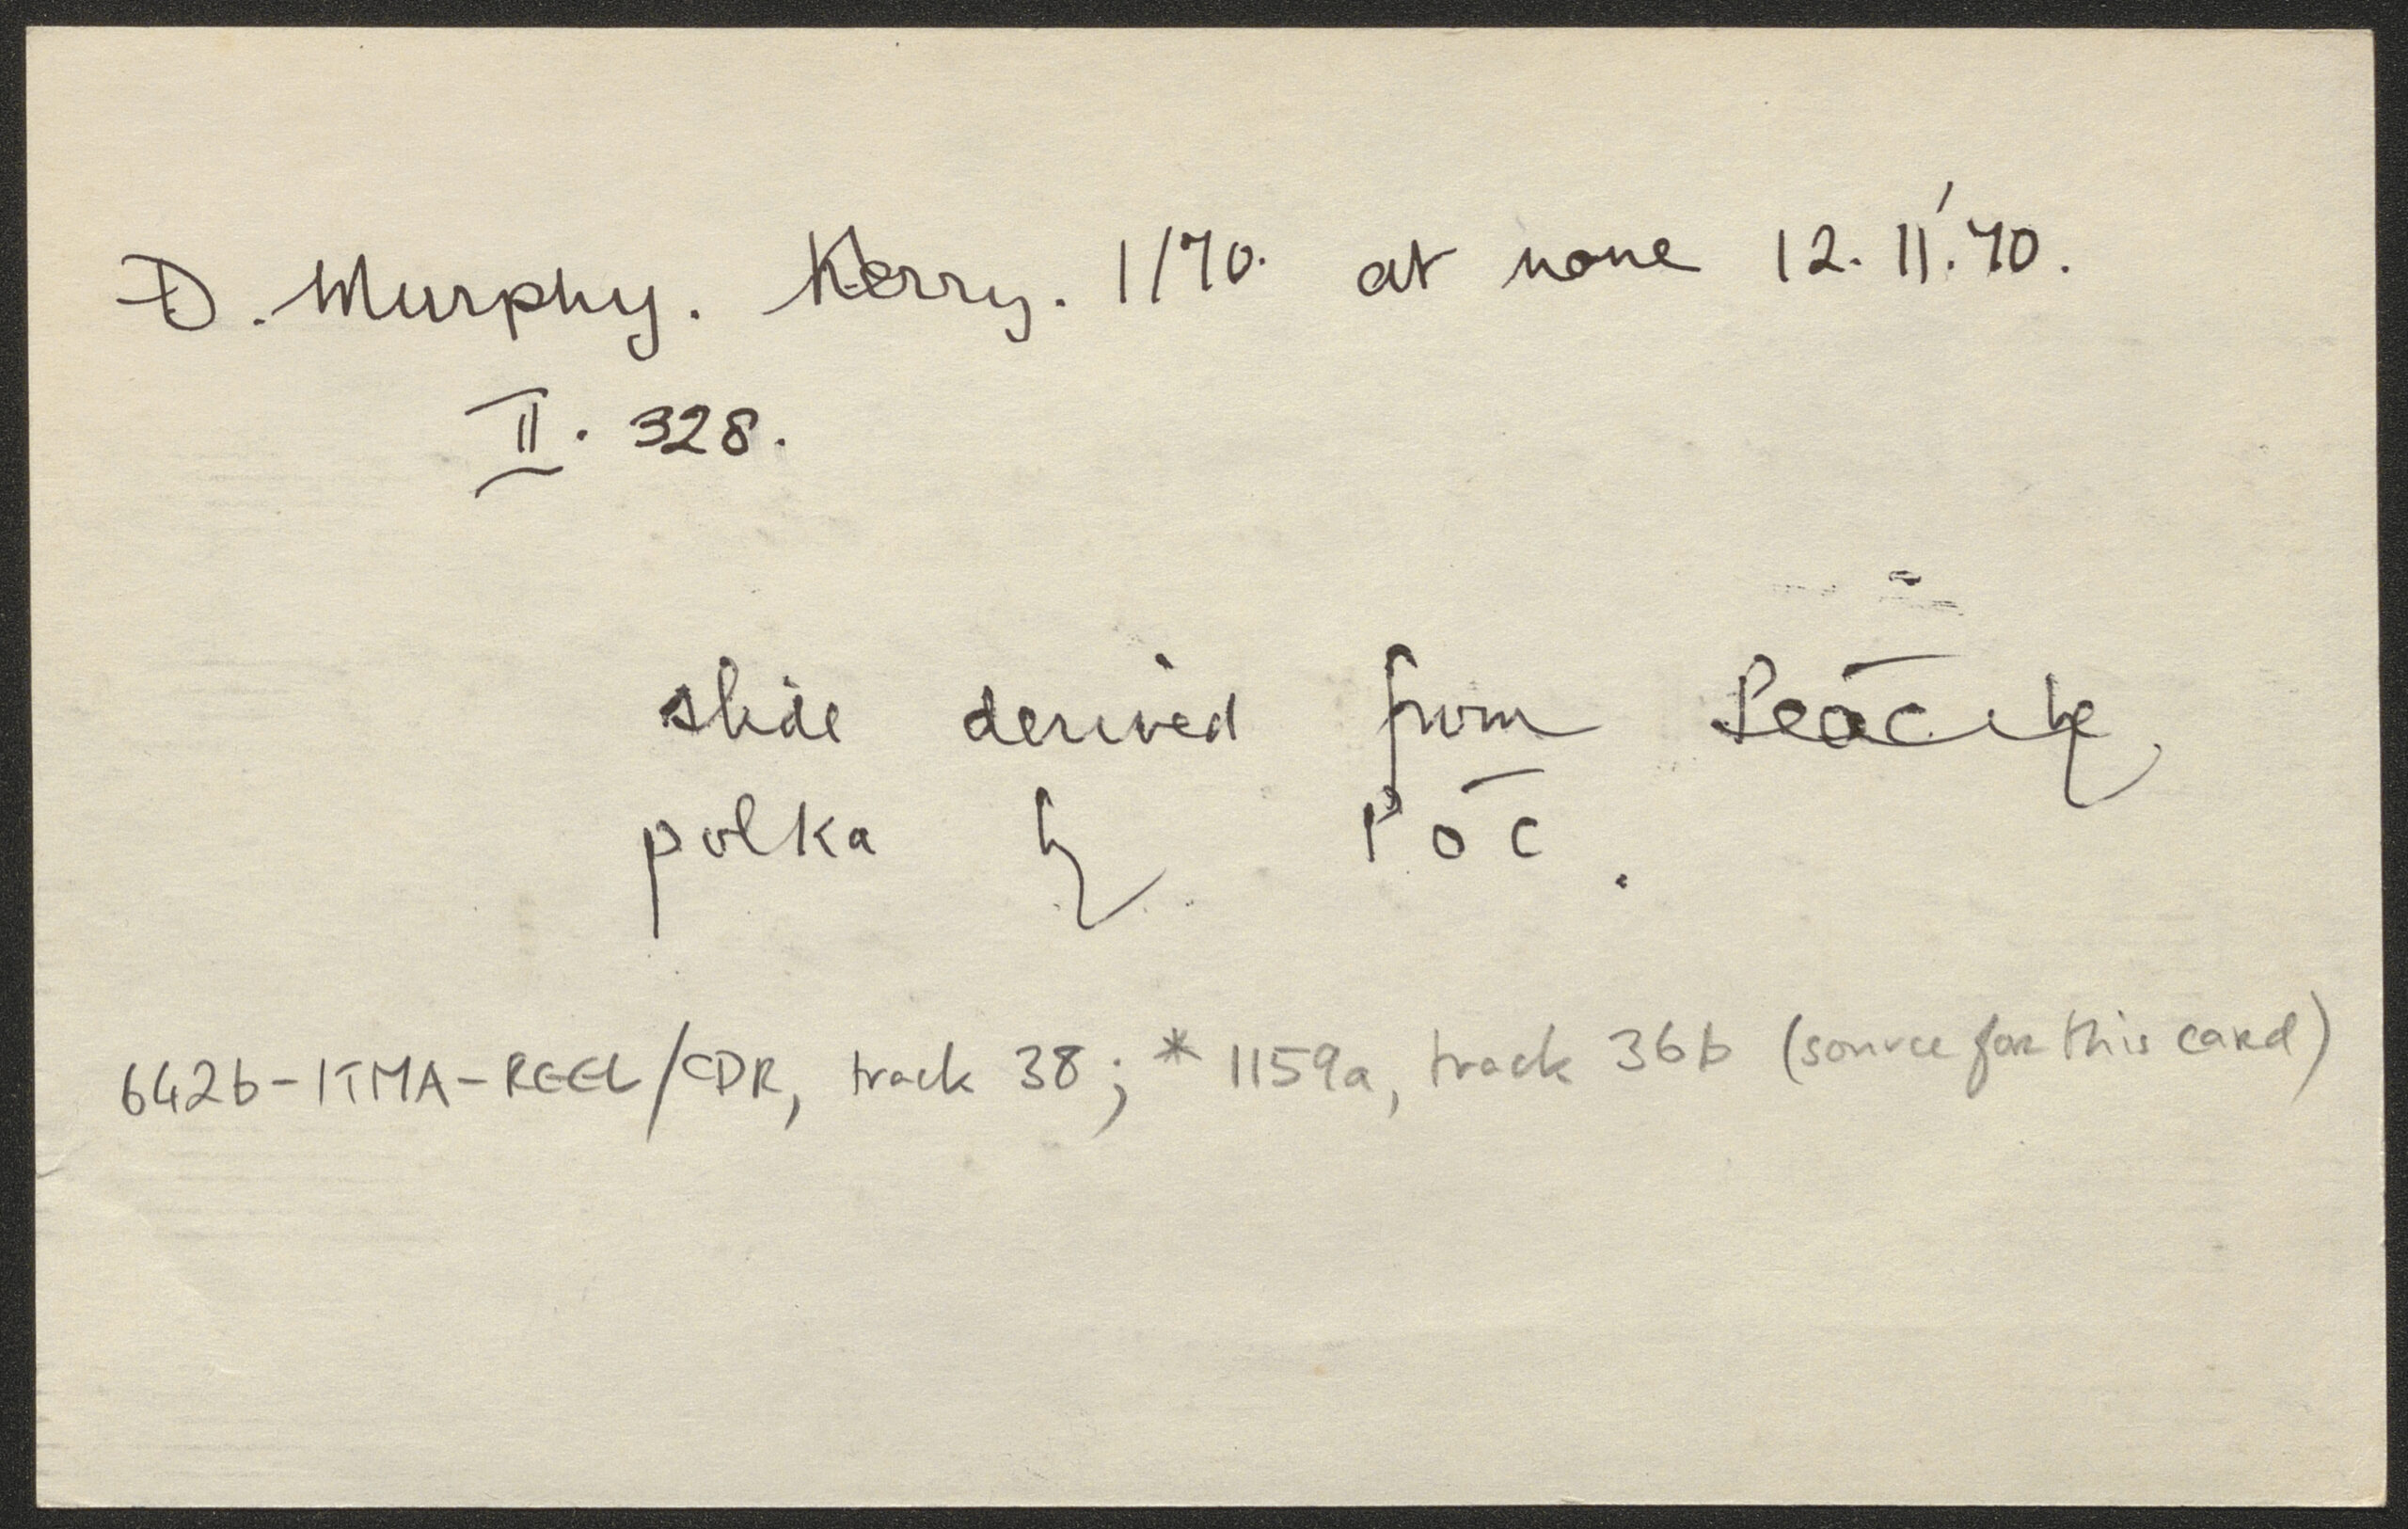 D. Murphy. Kerry. 1/70. at home 12.II.70.
II. 328.
slide derived from
polka by P Ó C.
642b-ITMA-REEL/CDR, track 38; * 1159a, track 36b (source for this card)